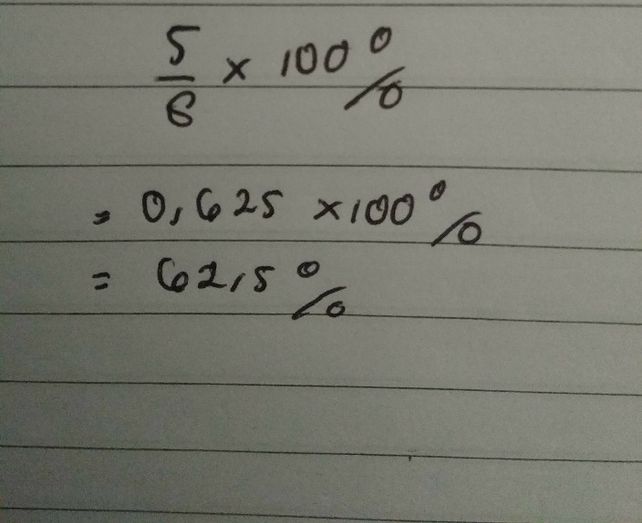 5/6 × 100%
= 0,625 ×100%
= 62,5%